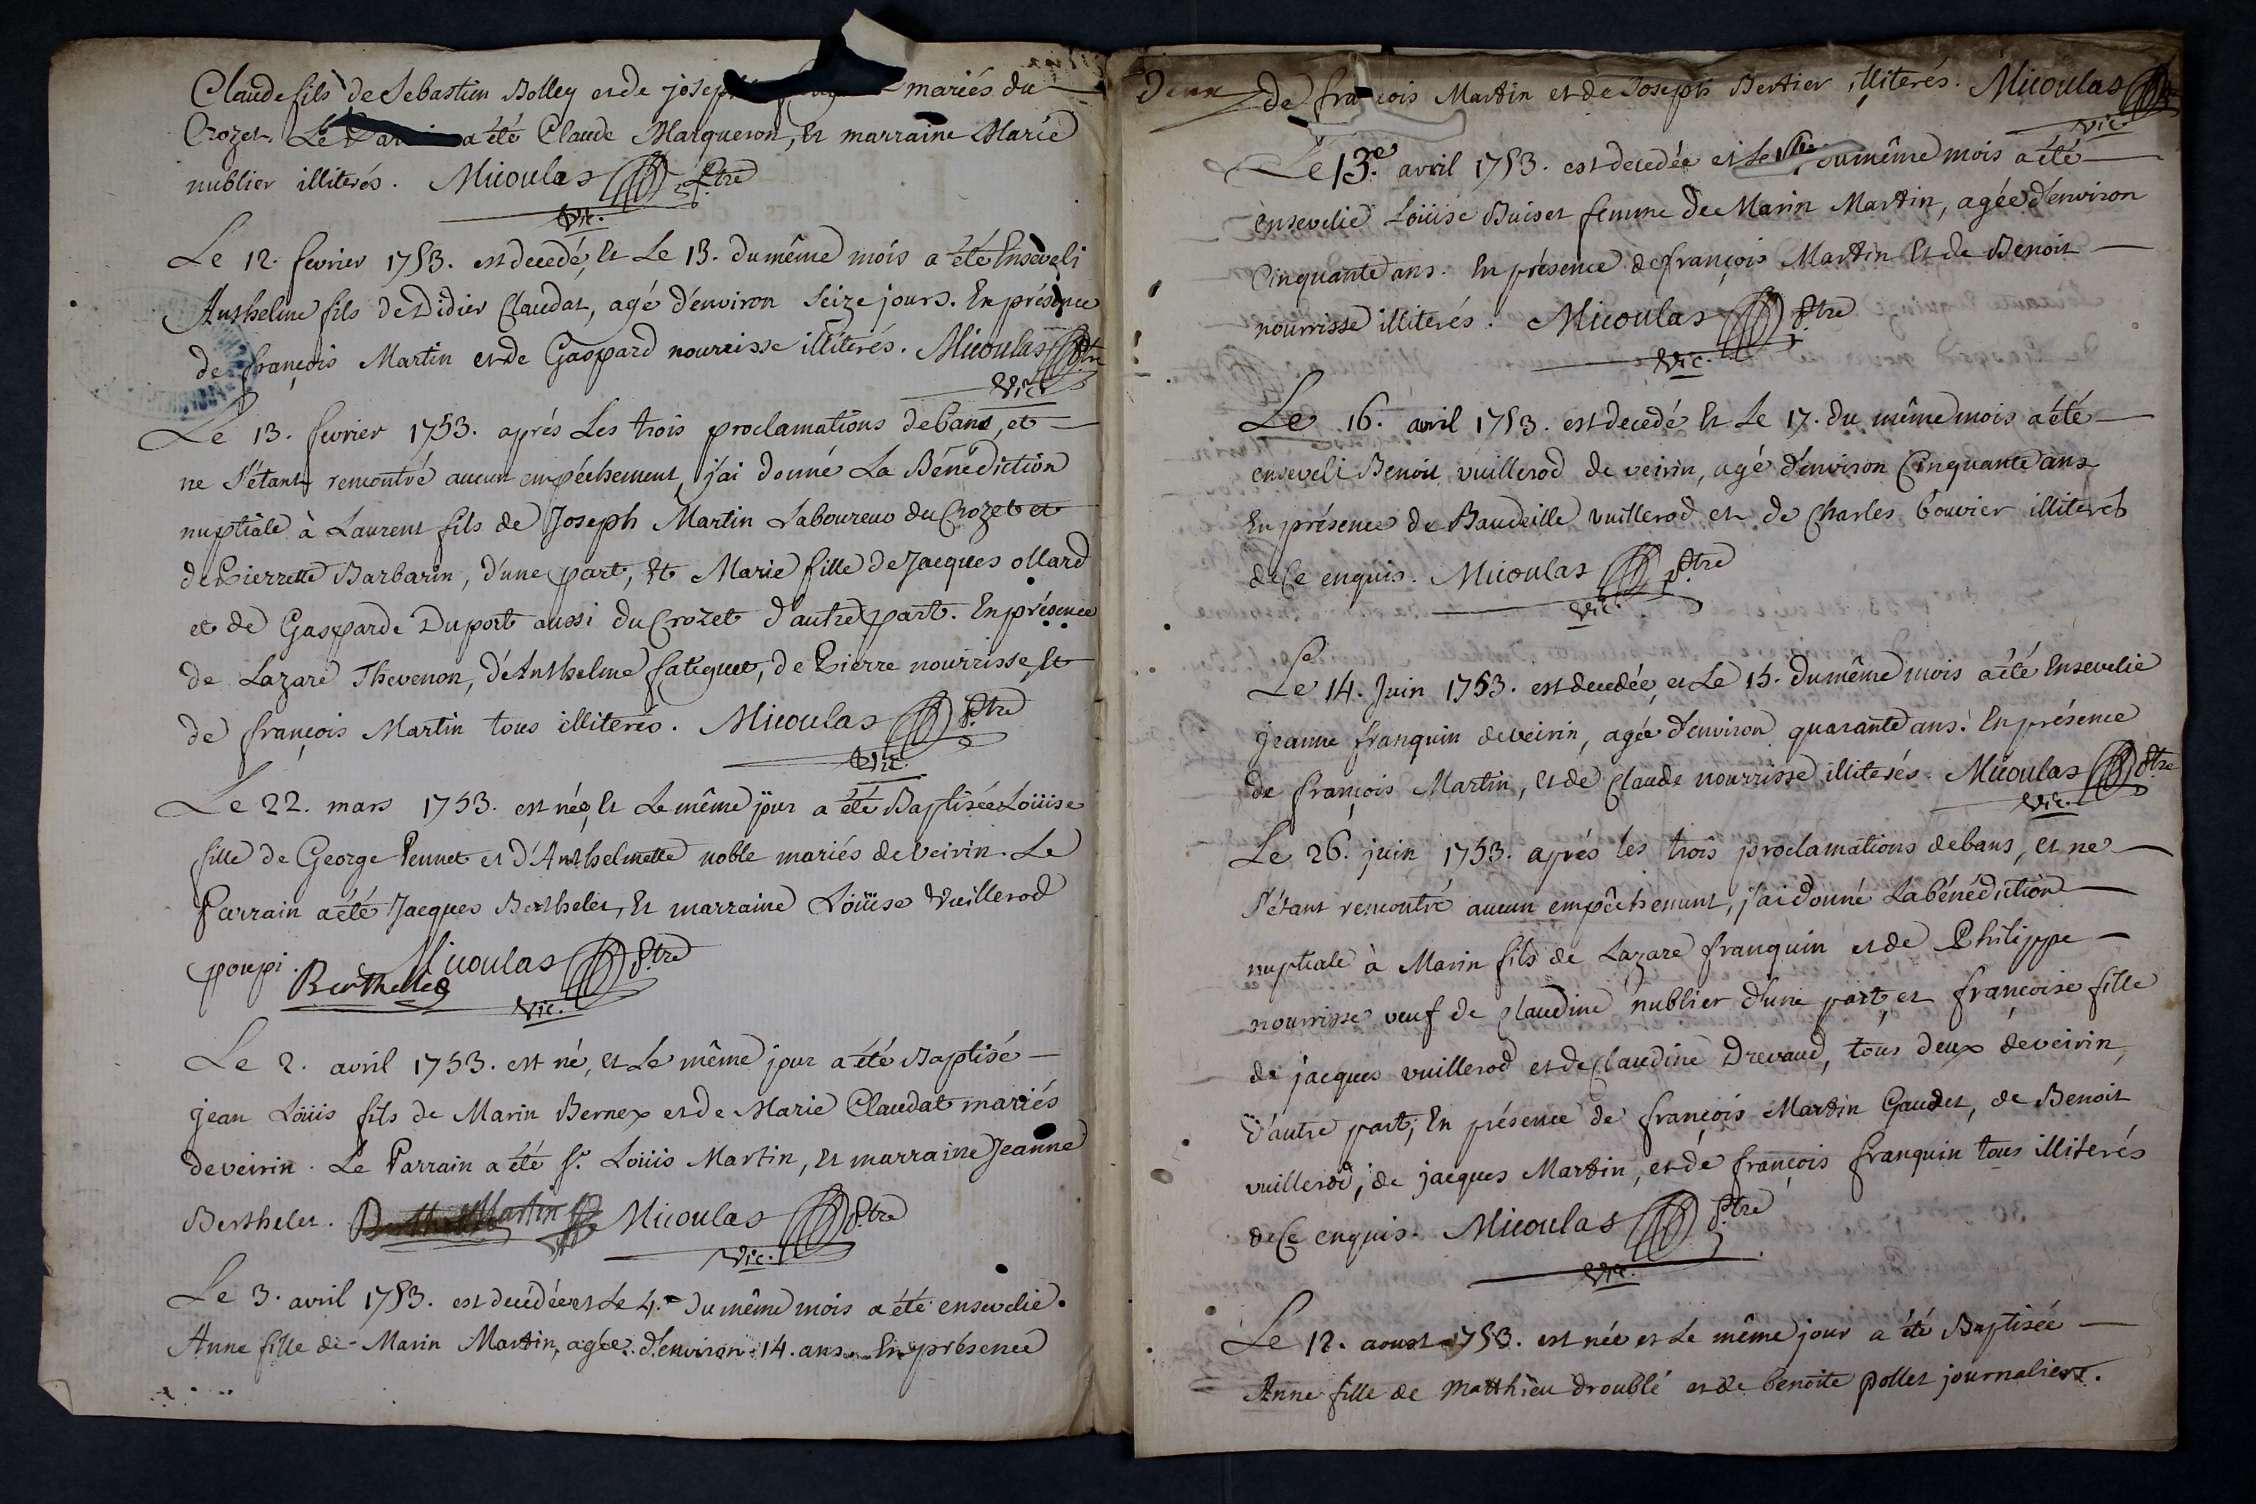 Claude fils de Sebastien Bolley et de mariés du
Crozet. Le a été Claude Marqueron, Et marraine Marie
nublier illiterés. Micoulas Ptre
Vic.
Le 12. fevrier 1753. est decedé, Et Le 13. du même mois a été Enseveli
Anthelme fils de Didier Claudat, agé d'environ seize jours. En présence
de françois Martin et de Gaspard nourrisse illiterés. Micoulas Ptre
Vic.
Le 13. fevrier 1753. aprés Les trois proclamations de bans, et
ne s'étant rencontré aucun empéchement, j'ai donné La Bénédiction
nuptiale à Laurent fils de Joseph Martin Laboureur du Crozet et
de Pierrette Barbarin, d'une part, Et Marie fille de Jacques ollard
et de Gasparde Duport aussi du Crozet d'autre part. En présence
de Lazare Thevenon, d'Anthelme fatiguet, de Pierre nourrisse, Et
de françois Martin tous illiterés. Micoulas Ptre
Vic.
Le 22. mars 1753. est née, Et Le même jour a été Baptisée Loüise
fille de George Pennet et d'Anthelmette noble mariés de veirin. Le
Parrain a été Jacques Berthelet, Et marraine Loüise Vuillerod
poupi. Micoulas Ptre
Berthelet Vic.
Le 2. avril 1753. est né, Et Le même jour a été Baptisé
jean Loüis fils de Marin Bernex et de Marie Claudat mariés
de veirin. Le Parrain a été Sr. Loüis Martin, Et marraine Jeanne
Berthelet. Martin Micoulas Ptre
Vic.
Le 3. avril 1753. est decédée et Le 4. du même mois a été ensevelie.
Anne fille de Marin Martin, agée d'environ 14. ans. En présence
Deux
de françois Martin et de Joseph Bertier illiterés. Micoulas
Vic.
Le 13e. avril 1753. est decedée et Le du même mois a été
ensevelie Loüise Buiset femme de Marin Martin, agée d'environ
Cinquante ans. En présence de françois Martin Et de Benoit
nourrisse illiterés. Micoulas Ptre
Vic.
Le 16. avril 1753. est decedé Et Le 17. du même mois a été
enseveli Benoit vuillerod de veirin, agé d'environ Cinquante ans
En présence de Baudeille vuillerod et de Charles bouvier illiterés
de Ce enquis. Micoulas Ptre
Vic.
Le 14. Juin 1753. est decedée, et Le 15. du même mois a été Ensevelie
jeanne franquin de veirin, agée d'environ quarante ans. En présence
de françois Martin, Et de Claude nourrisse illiterés. Micoulas Ptre
Vic.
Le 26. juin 1753. aprés les trois proclamations de bans, et ne
s'étant rencontré aucun empêchement, j'ai donné La bénédiction
nuptiale à Marin fils de Lazare franquin et de Philippe
nourrisse veuf de Claudine nublier d'une part, et françoise fille
de jacques vuillerod et de Claudine Drevaud, tous deux de veirin,
d'autre part, En présence de françois Martin Gaudet, de Benoit
vuillerod, de jacques Martin, et de françois franquin tous illiterés
de Ce enquis. Micoulas Ptre
Vic.
Le 12. aoust 1753. est née et Le même jour a été Baptisée
Anne fille de Matthieu droublé et de benoite pollet journaliers.